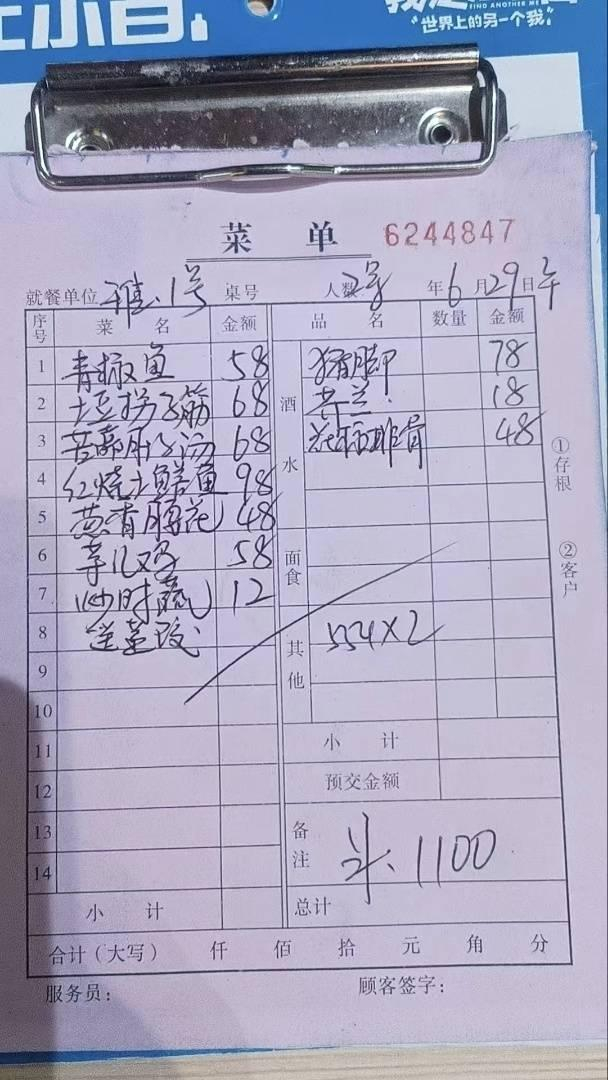 世界上的另一个我
菜 单 6244847
就餐单位 雅.1号 桌号 人数 2号 年6月29日午
序号 菜 名 金额 品 名 数量 金额
1 青椒鱼 58 酒水 猪脚 78
2 土豆拐子筋 68 芥兰 18
3 68 排骨 48
4 红烧土鲜鱼 98
5 葱香腰花 48
6 58 面食
7 炒时蔬 12
8 其他 554×2
9
10
11 小 计
12 预交金额
13 备注 1100
14
小 计 总计
合计(大写) 仟 佰 拾 元 角 分
服务员: 顾客签字:
①存根
②客户